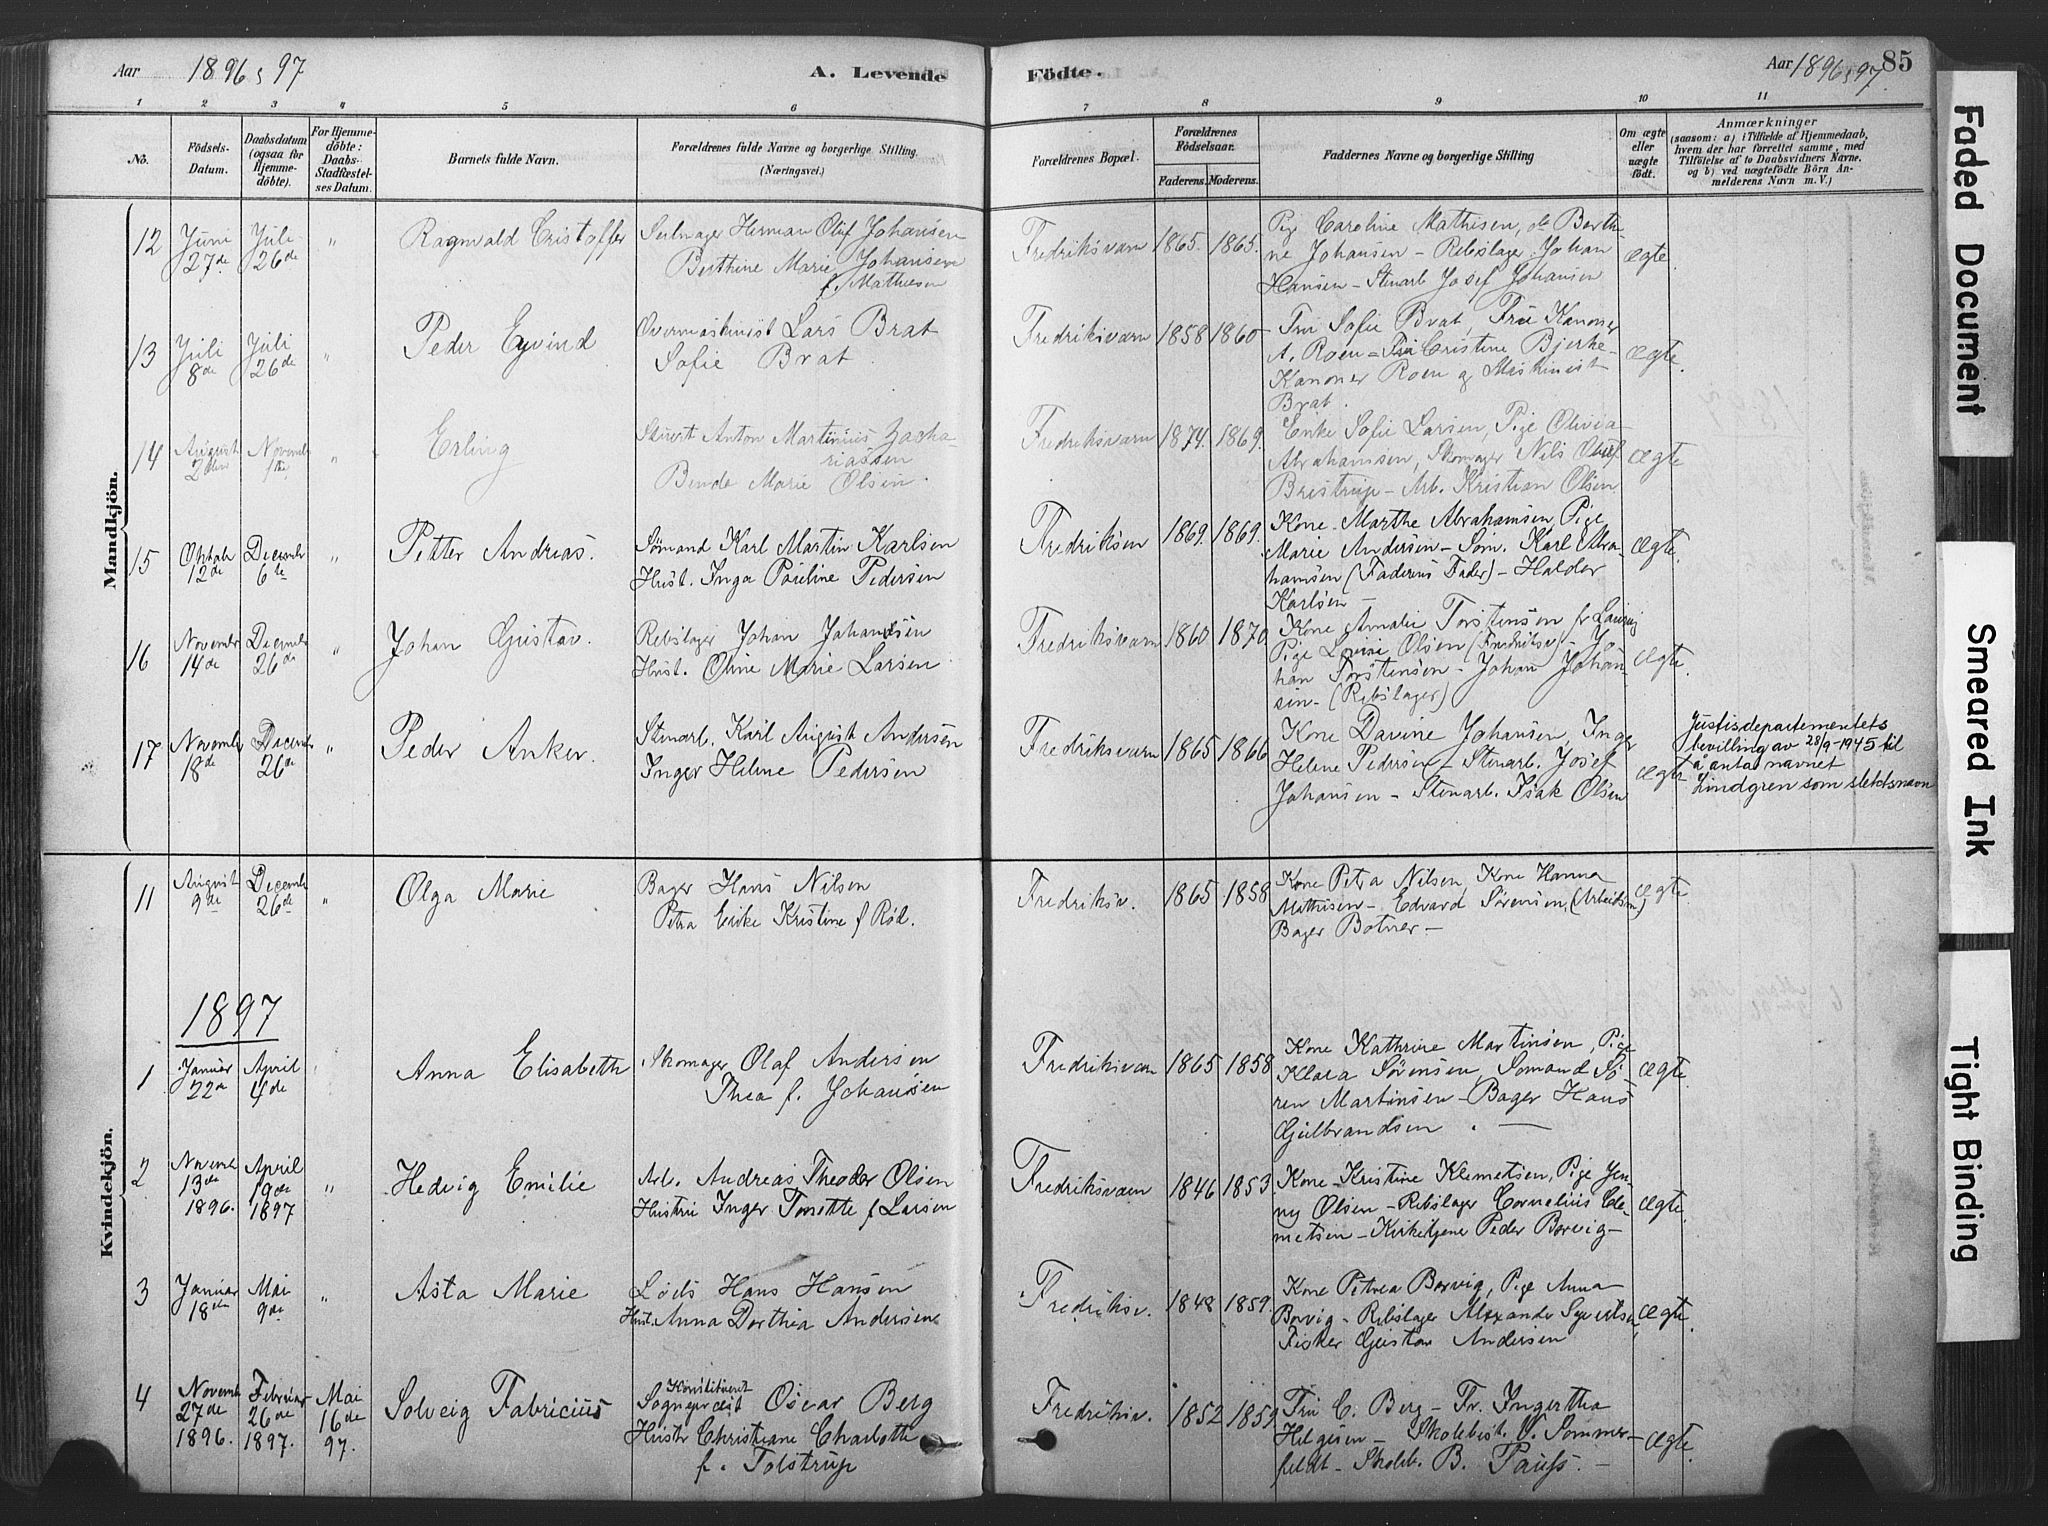 Aar 1896 & 97
A. Levende
Födte.
Aar 1896 & 97.
85
1 2 3 4 5 6 7 8 9 10 11
No.
Födsels-
Datum.
Daabsdatum
(ogsaa for
Hjemme-
döbte).
For Hjemme-
döbte:
Daabs-
Stadfæstel-
ses Datum.
Barnets fulde Navn.
Forældrenes fulde Navne og borgerlige Stilling
(Næringsvei.)
Forældrenes Bopæl.
Forældrenes
Födselsaar.
Faderens. Moderens.
Faddernes Navne og borgerlige Stilling
Om ægte
eller
uægte
födt.
Anmærkninger
(saasom: a) i Tilfælde af Hjemmedaab,
hvem der har forrettet samme, med
Tilföielse af to Daabsvidners Navne.
og b) ved uægtefödte Börn An-
melderens Navn m. V.)
Mandkjön.
12
Juni
27de
Juli
26de
"
Ragnvald Cristoffer
Seilmager Herman Oluf Johansen
Berthine Marie Johansen
f. Mathisen
Fredriksværn
1865.
1865.
Pige Caroline Mathisen, do Berthi-
ne Johansen – Rebslager Johan
Hansen – Stenarb Josef Johansen
ægte.
13
Juli
8de
Juli
26de
"
Peder Eyvind
Overmaskinist Lars Brat
Sofie Brat
Fredriksværn
1858
1860
Fru Sofie Brat, Fru Kanoner
A. Roen – Fru Cristine Bjerke-
Kanoner Roen og Maskinist
Brat.
ægte.
14
August
2den
Novembr
1ste
"
Erling
Anton Martinius Zacha
riassen
Bende Marie Olsen.
Fredriksværn
1874.
1869.
Enke Sofie Larsen, Pige Olivia
Abrahamsen, Skomager Nils Oluf
Bristrup – Arb. Kristian Olsen
ægte
15
Oktob
12de
Decembr
6te
"
Petter Andreas.
Sömand Karl Martin Karlsen
Hust. Inga Pauline Pedersen
Fredriksvn
1869.
1869.
Kone Marthe Abrahamsen, Pige
Marie Andersen – Söm. Karl Abra
hamsen (Faderens Fader) – Halder
Karlsen –
ægte.
16
Novembr
14de
Decembr
26de
"
Johan Gustav.
Rebslager Johan Johansen
Hust. Oline Marie Larsen
Fredriksværn
1860
1870
Kone Amalie Torstensen fr Laurvig
Pige Lovise Olsen (Fredriksv) – Jo-
han Torstensen – Johan Johan-
sen – (Rebslager)
ægte.
17
Novembr
18de
Decembr
26de
"
Peder Anker.
Stenarb. Karl August Andersen
Inger Helene Pedersen
Fredriksværn
1865
1866
Kone Davine Johansen, Inger
Helene Pedersen – Stenarb. Josef
Johansen – Stenarb. Isak Olsen
ægte
Justisdepartementets
bevilling av 28/9-1945 til
å anta navnet
Lindgren som slektsnavn
Kvindekjön.
11
August
9de
Decembr
26de
"
Olga Marie
Bager Hans Nilsen
Petra Erike Kristine f Röd.
Fredriksv.
1865
1858
Kone Petra Nilsen, Kone Hanna
Mathisen – Edvard Sörensen, (Arbeidsm)
Bager Botner –
ægte.
1897
1
Januar
22de
April
4de
Anna Elisabeth
Skomager Olaf Andersen
Thea f. Johansen
Fredriksværn
1865
1858
Kone Kathrine Martinsen, Pige
Klara Sörensen, Sömand Sö
ren Martinsen – Bager Hans
Gulbrandsen. –
ægte.
2
Novembr
13de
1896.
April
19de
1897
"
Hedvig Emilie
Arb. Andreas Theodor Olsen
Hustru Inger Tonette f Larsen
Fredriksværn
1846
1853
Kone Kristine Klemetsen, Pige Jen-
ny Olsen – Rebslager Cornelius Cle-
metsen – Kirketjener Peder Borvig –
ægte.
3
Januar
18de
Mai
9de
"
Asta Marie
Lods Hans Hansen
Hust. Anna Dorthea Andersen
Fredriksv.
1848
1859.
Kone Petrea Borvig, Pige Anna
Borvig – Rebslager Alexander Syvertsen
Fisker Gustav Andersen
ægte.
4
Novembr
27de
1896.
Februar
26de
1897.
Mai
16de
97.
Solveig Fabricius
Konstitueret
Sogneprest Oscar Berg
Hustr Christiane Charlotte
f. Tolstrup
Fredriksv.
1852
1859
Fru C. Berg – Fr. Ingertha
Helgesen – Skolebest. V. Sommer-
feldt – Skoleb. B. Pauss. –
ægte.
Faded Document
Smeared Ink
Tight Binding